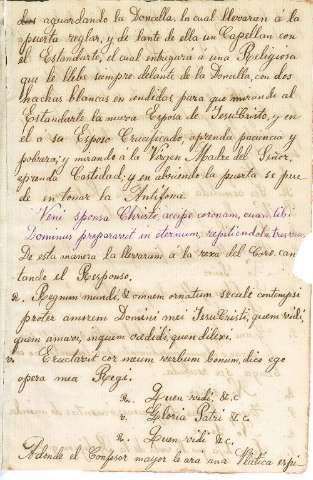 dos aguardando la Doncella, la cual llevaran á la
puerta reglar, y de lante de ella un Capellan con
el Estandarte, el cual entregará á una Religiosa
que le lleba sempre delante de la Doncella, con dos
hachas blancas en sendidas para que mirando al
Estandarte la nueva Esposa de Jesu Cristo, y en
el a su Esposo Crucificado, aprenda paciencia y
pobreza; y mirando a la Virgen Madre del Señor,
aprenda Castedad; y en abriendo la puerta se pue
de en tonar la Antífona.
Veni sponsa Christe, accipe coronam, cuam tibi
Dominus preparavit in eternum, repitiendola tres veces
De esta manera la llevaran a la rexa del Coro. can
tando el Responso.
R. Regnum mundi, & omnem ornatum seculi contempsi
proter amorem Domini mei Jesu Cristi, quem vidi
quem amavi, inquem credidi, quen dilexi.
V. Eructavit cor meum verbum bonum, dico ego
opera mea Regi.
R. Quen vidi &c.
V. Gloria Patri &c.
R. Quen vidi &c.
Adonde el Confesor mayor le ará una Platica espi